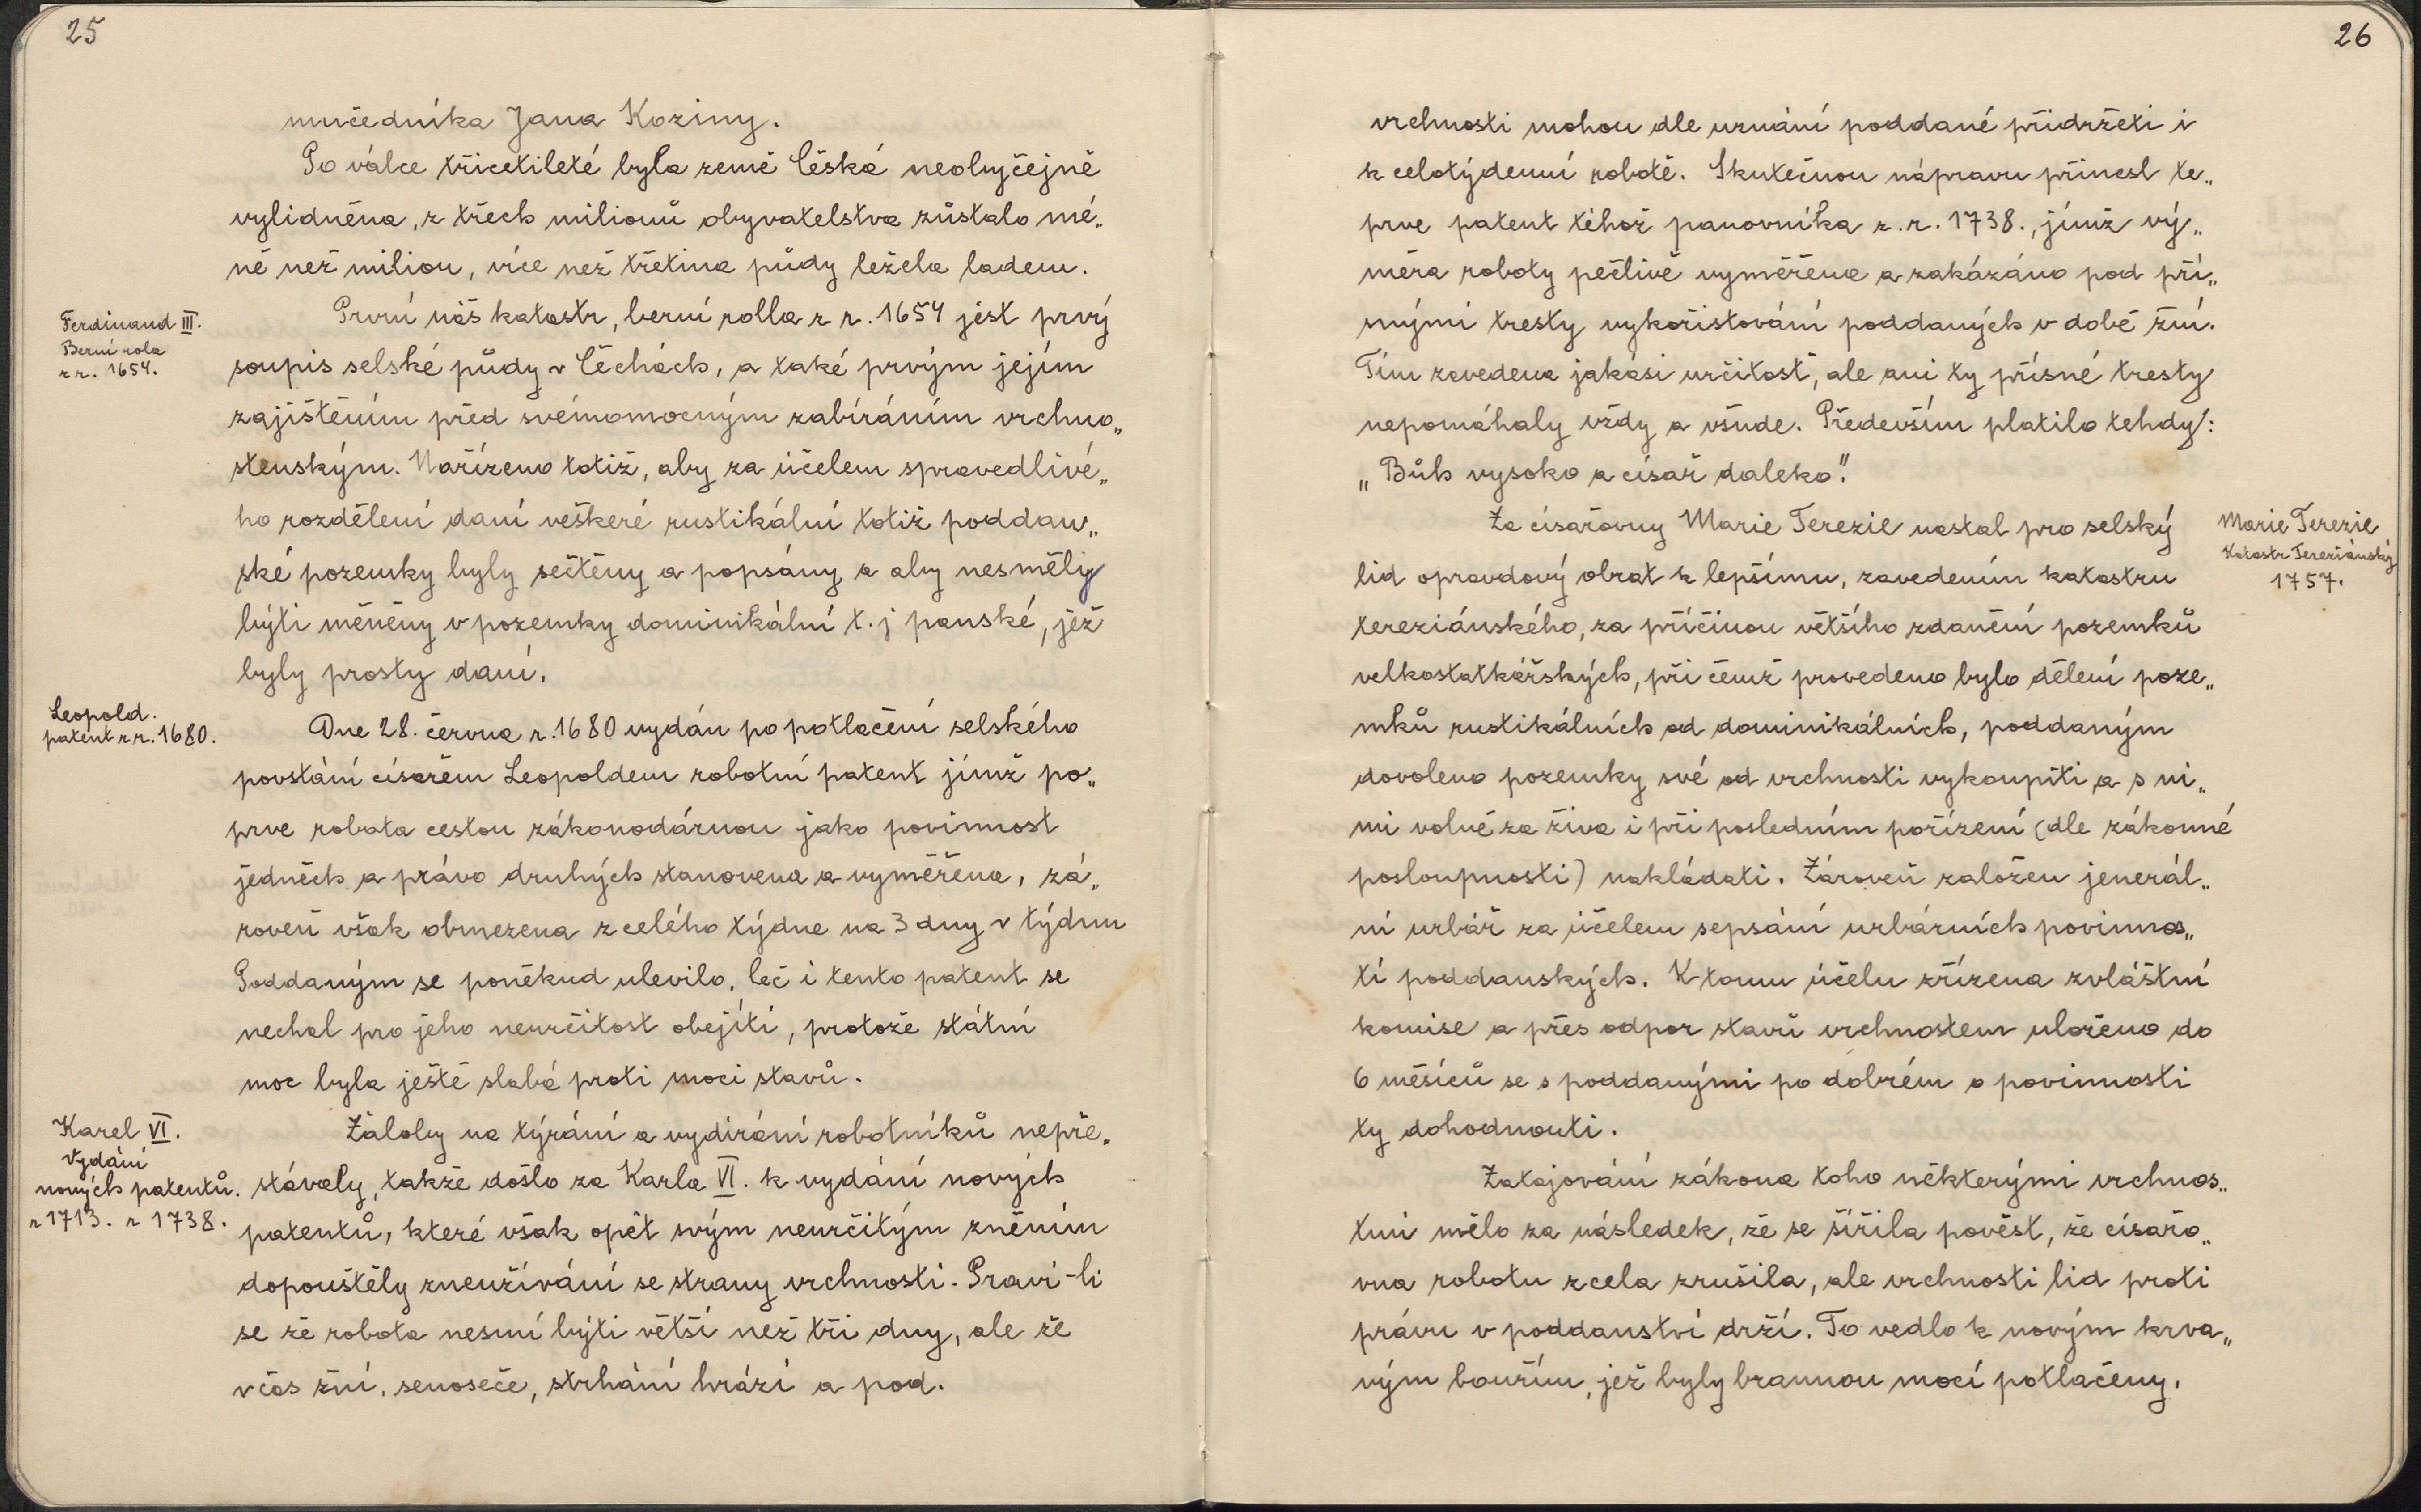 25
mučedníka Jana Koziny.
Po válce třicetileté byla země Česká neobyčejně
vylidněna, z třech milionů obyvatelstva zůstalo mé„
ně než milion, více než třetina půdy ležela ladem.
Ferdinand III.
Berní rola
z r. 1654.
První náš katastr, berní rolla z r. 1654 jest prvý
soupis selské půdy v Čechách, a také prvým jejím
zajištěním před svémomocným zabíráním vrchno„
stenským. Nařízeno totiž, aby za účelem spravedlivé„
ho rozdělení daní veškeré rustikální totiž poddan„
ské pozemky byly sečtěny a popsány a aby nesměly
býti měněny v pozemky dominikální t. j panské, jež
byly prosty daní.
Leopold.
patent z r. 1680.
Dne 28. června r. 1680 vydán po potlačení selského
povstání císařem Leopoldem robotní patent jímž po„
prve robota cestou zákonodárnou jako povinnost
jedněch a právo druhých stanovena a vyměřena, zá„
roveň však obmezena z celého týdne na 3 dny v týdnu
Poddaným se poněkud ulevilo, leč i tento patent se
nechal pro jeho neurčitost obejíti, protože státní
moc byla ještě slabá proti moci stavů.
Karel VI.
Vydání
nových patentů.
r 1713. r 1738.
Žaloby na týrání a vydírání robotníků nepře„
stávaly, takže došlo za Karla VI. k vydání nových
patentů, které však opět svým neurčitým zněním
dopouštěly zneužívání se strany vrchnosti. Praví-li
se že robota nesmí býti větší než tři dny, ale že
v čas žní, senoseče, strhání hrází a pod.
26
vrchnosti mohou dle uznání poddané přidržeti i
k celotýdenní robotě. Skutečnou nápravu přinesl te„
prve patent téhož panovníka z. r. 1738., jímž vý„
měra roboty pečlivě vyměřena a zakázáno pod pří„
snými tresty vykořistování poddaných v době žní.
Tím zavedena jakási určitost, ale ani ty přísné tresty
nepomáhaly vždy a všude. Především platilo tehdy:
„Bůh vysoko a císař daleko."
Za císařovny Marie Terezie nastal pro selský
Marie Terezie
Katastr Tereziánský
1757.
lid opravdový obrat k lepšímu, zavedením katastru
tereziánského, za příčinou většího zdanění pozemků
velkostatkářských, při čemž provedeno bylo dělení poze„
mků rustikálních od dominikálních, poddaným
dovoleno pozemky své od vrchnosti vykoupiti a s ni„
mi volně za živa i při posledním pořízení (dle zákonné
posloupnosti) nakládati. Zároveň založen jenerál„
ní urbář za účelem sepsání urbárních povinnos„
tí poddanských. K tomu účelu zřízena zvláštní
komise a přes odpor stavů vrchnostem uloženo do
6 měsíců se s poddanými po dobrém o povinnosti
ty dohodnouti.
Zatajování zákona toho některými vrchnos„
tmi mělo za následek, že se šířila pověst, že císařo„
vna robotu zcela zrušila, ale vrchnosti lid proti
právu v poddanství drží. To vedlo k novým krva„
vým bouřím, jež byly brannou mocí potlačeny.